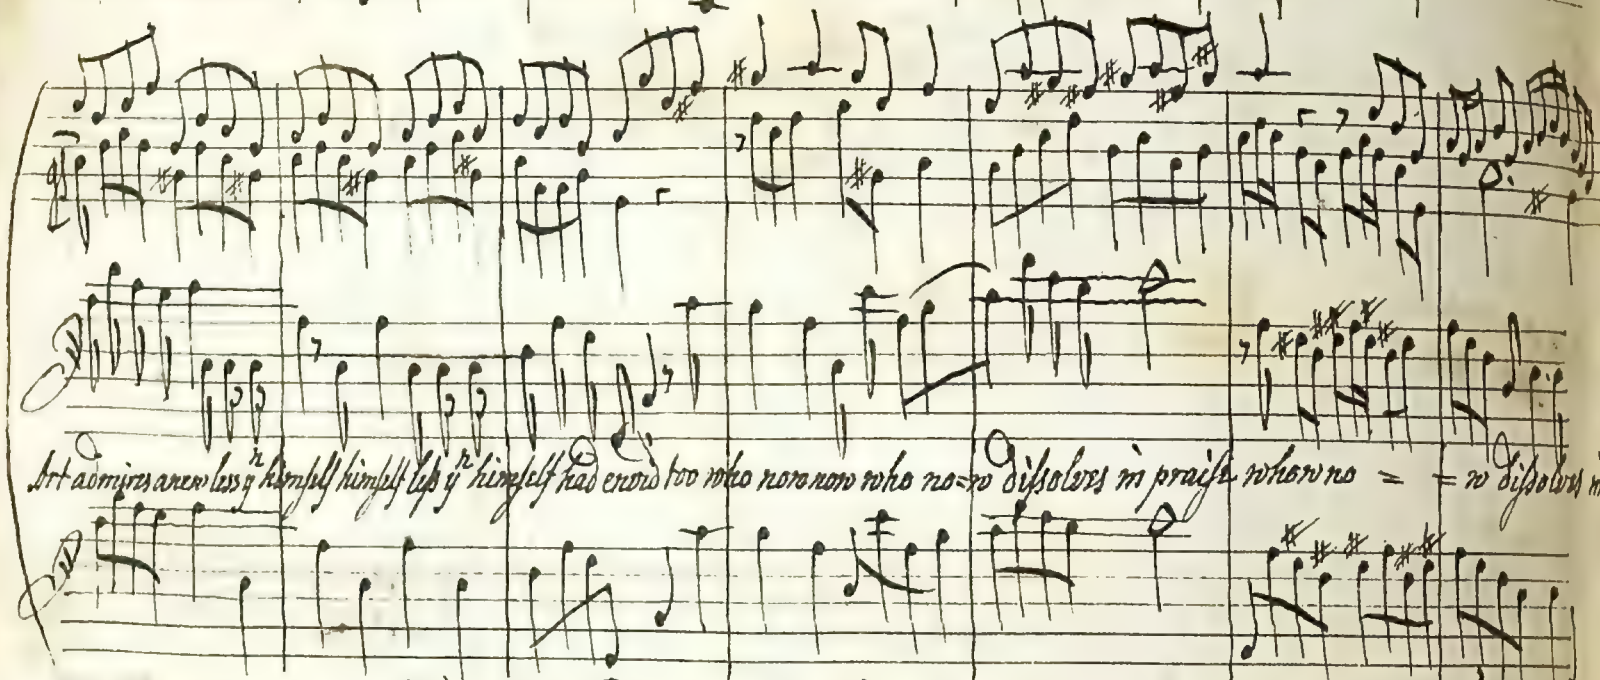 Art admires anew less yn himself himself less yn himself had envoid too who now now who no=w dissolves in praise who w no = = w dissolves in